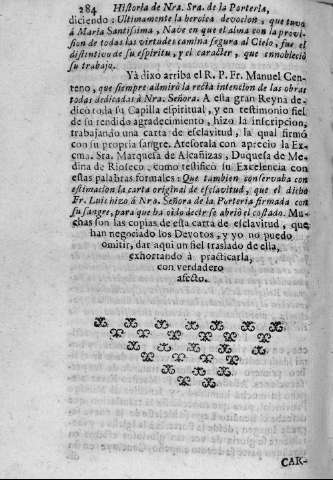 284 Historia de Nra. Sra. de la Porteria,
diciendo: Ultimamente la heroica devocion, que tuvo
à Maria Santissima, Nave en que el alma con la provi-
sion de todas las virtudes camina segura al Cielo, fue el
distintivo de su espiritu, y el caracter, que ennobleciò
su trabajo.
Yà dixo arriba el R. P. Fr. Manuel Cen-
teno, que siempre admirò la recta intencion de las obras
todas dedicadas à Nra. Señora. A esta gran Reyna de-
dicò toda su Capilla espiritual, y en testimonio fiel
de su rendido agradecimiento, hizo la inscripcion,
trabajando una carta de esclavitud, la qual firmò
con su propria sangre. Atesorala con aprecio la Ex-
cma. Sra. Marquesa de Alcañizas, Duquesa de Me-
dina de Rioseco, como testificò su Excelencia con
estas palabras formales: Que tambien conservaba con
estimacion la carta original de esclavitud, que el dicho
Fr. Luis hizo à Nra. Señora de la Porteria firmada con
su sangre, para que ha oìdo decir se abriò el costado. Mu-
chas son las copias de esta carta de esclavitud, que
han negociado los Devotos, y yo no puedo
omitir, dar aqui un fiel traslado de ella,
exhortando à practicarla,
con verdadero
afecto.
CAR-